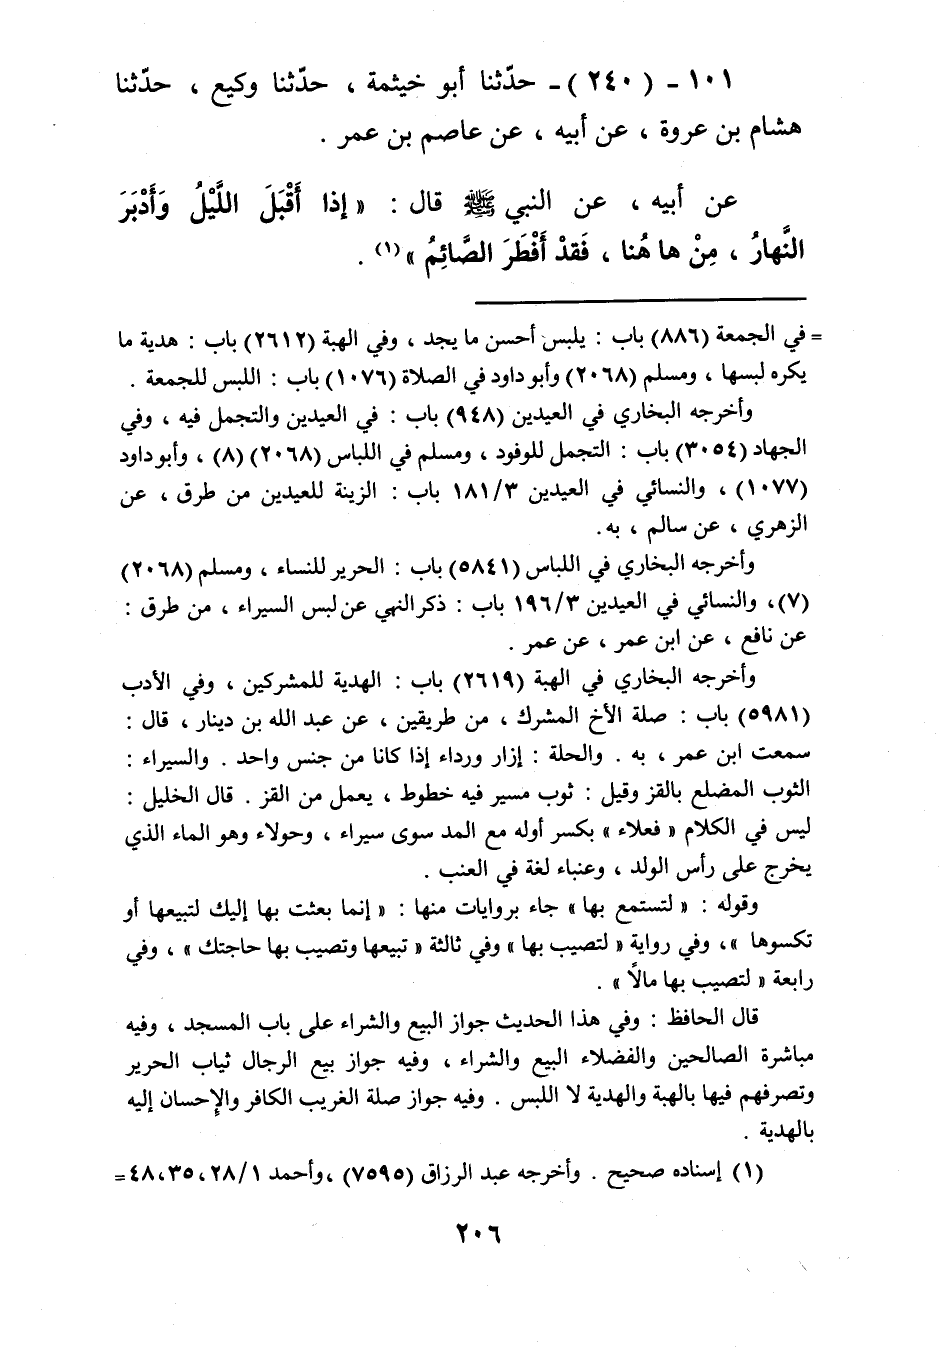 ١٠١ - (٢٤٠) - حدّثنا أبو خيثمة ، حدّثنا وكيع ، حدّثنا
هشام بن عروة ، عن أبيه ، عن عاصم بن عمر .
عن أبيه ، عن النبي ﷺ قال : « إذا أَقْبَلَ اللَّيْلُ وَأَدْبَرَ
النَّهارُ ، مِنْ ها هُنا ، فَقدْ أَفْطَرَ الصَّائِمُ »(١) .
= في الجمعة (٨٨٦) باب : يلبس أحسن ما يجد ، وفي الهبة (٢٦١٢) باب : هدية ما
يكره لبسها ، ومسلم (٢٠٦٨) وأبو داود في الصلاة (١٠٧٦) باب : اللبس للجمعة .
وأخرجه البخاري في العيدين (٩٤٨) باب : في العيدين والتجمل فيه ، وفي
الجهاد (٣٠٥٤) باب : التجمل للوفود ، ومسلم في اللباس (٢٠٦٨) (٨) ، وأبو داود
(١٠٧٧) ، والنسائي في العيدين ٣/ ١٨١ باب : الزينة للعيدين من طرق ، عن
الزهري ، عن سالم ، به.
وأخرجه البخاري في اللباس (٥٨٤١) باب : الحرير للنساء ، ومسلم (٢٠٦٨)
(٧)، والنسائي في العيدين ٣/ ١٩٦ باب : ذكر النهي عن لبس السيراء ، من طرق :
عن نافع ، عن ابن عمر ، عن عمر .
وأخرجه البخاري في الهبة (٢٦١٩) باب : الهدية للمشركين ، وفي الأدب
(٥٩٨١) باب : صلة الأخ المشرك ، من طريقين ، عن عبد الله بن دينار ، قال :
سمعت ابن عمر ، به . والحلة : إزار ورداء إذا كانا من جنس واحد . والسيراء :
الثوب المضلع بالقز وقيل : ثوب مسير فيه خطوط ، يعمل من القز . قال الخليل :
ليس في الكلام « فعلاء » بكسر أوله مع المد سوى سيراء ، وحولاء وهو الماء الذي
يخرج على رأس الولد ، وعنباء لغة في العنب .
وقوله : « لتستمع بها » جاء بروايات منها : « إنما بعثت بها إليك لتبيعها أو
تكسوها »، وفي رواية « لتصيب بها » وفي ثالثة « تبيعها وتصيب بها حاجتك » ، وفي
رابعة « لتصيب بها مالاً » .
قال الحافظ : وفي هذا الحديث جواز البيع والشراء على باب المسجد ، وفيه
مباشرة الصالحين والفضلاء البيع والشراء ، وفيه جواز بيع الرجال ثياب الحرير
وتصرفهم فيها بالهبة والهدية لا اللبس . وفيه جواز صلة الغريب الكافر والإحسان إليه
بالهدية .
(١) إسناده صحيح . وأخرجه عبد الرزاق (٧٥٩٥) ،وأحمد ١/ ٢٨، ٣٥، ٤٨ =
٢٠٦